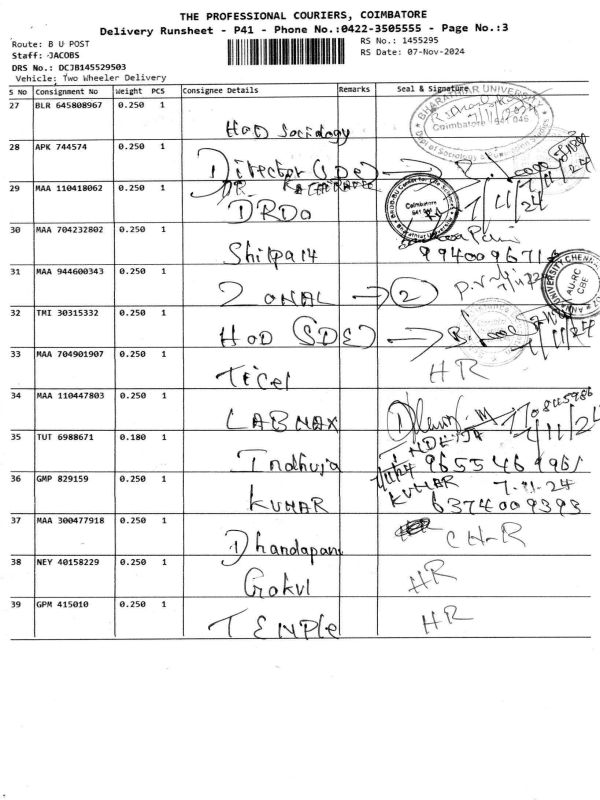 THE PROFESSIONAL COURIERS, COIMBATORE
Delivery Runsheet - P41 - Phone No.:0422-3505555 - Page No.:3
Route: B U POST
RS No.: 1455295
Staff: JACOBS
RS Date: 07-Nov-2024
DRS No.: DCJB145529503
Vehicle: Two Wheeler Delivery
S No Consignment No Weight PCS Consignee Details Remarks Seal & Signature
27 BLR 645808967 0.250 1
HOD Sociology
BHARATHIAR UNIVERSITY
Coimbatore 641 046
28 APK 744574 0.250 1
Director (SDE) →
DR.
29 MAA 110418062 0.250 1
DRDO
Coimbatore
641 046
7/11/24
30 MAA 704232802 0.250 1
Shilpa14
31 MAA 944600343 0.250 1
ZONAL → 2
ANNA UNIVERSITY CHENNAI
AU-RC
CBE
32 TMI 30315332 0.250 1
HOD (SDE) →
7/11/24
33 MAA 704901907 0.250 1
Ticel
HR
34 MAA 110447803 0.250 1
LABMAX
7/11/24
35 TUT 6988671 0.180 1
Indhuja
7/11/24 9655469961
36 GMP 829159 0.250 1
KUMAR
KUMAR 7-11-24
6374009393
37 MAA 300477918 0.250 1
Dhandapani
38 NEY 40158229 0.250 1
Gokul
HR
39 GPM 415010 0.250 1
TEMPle
HR